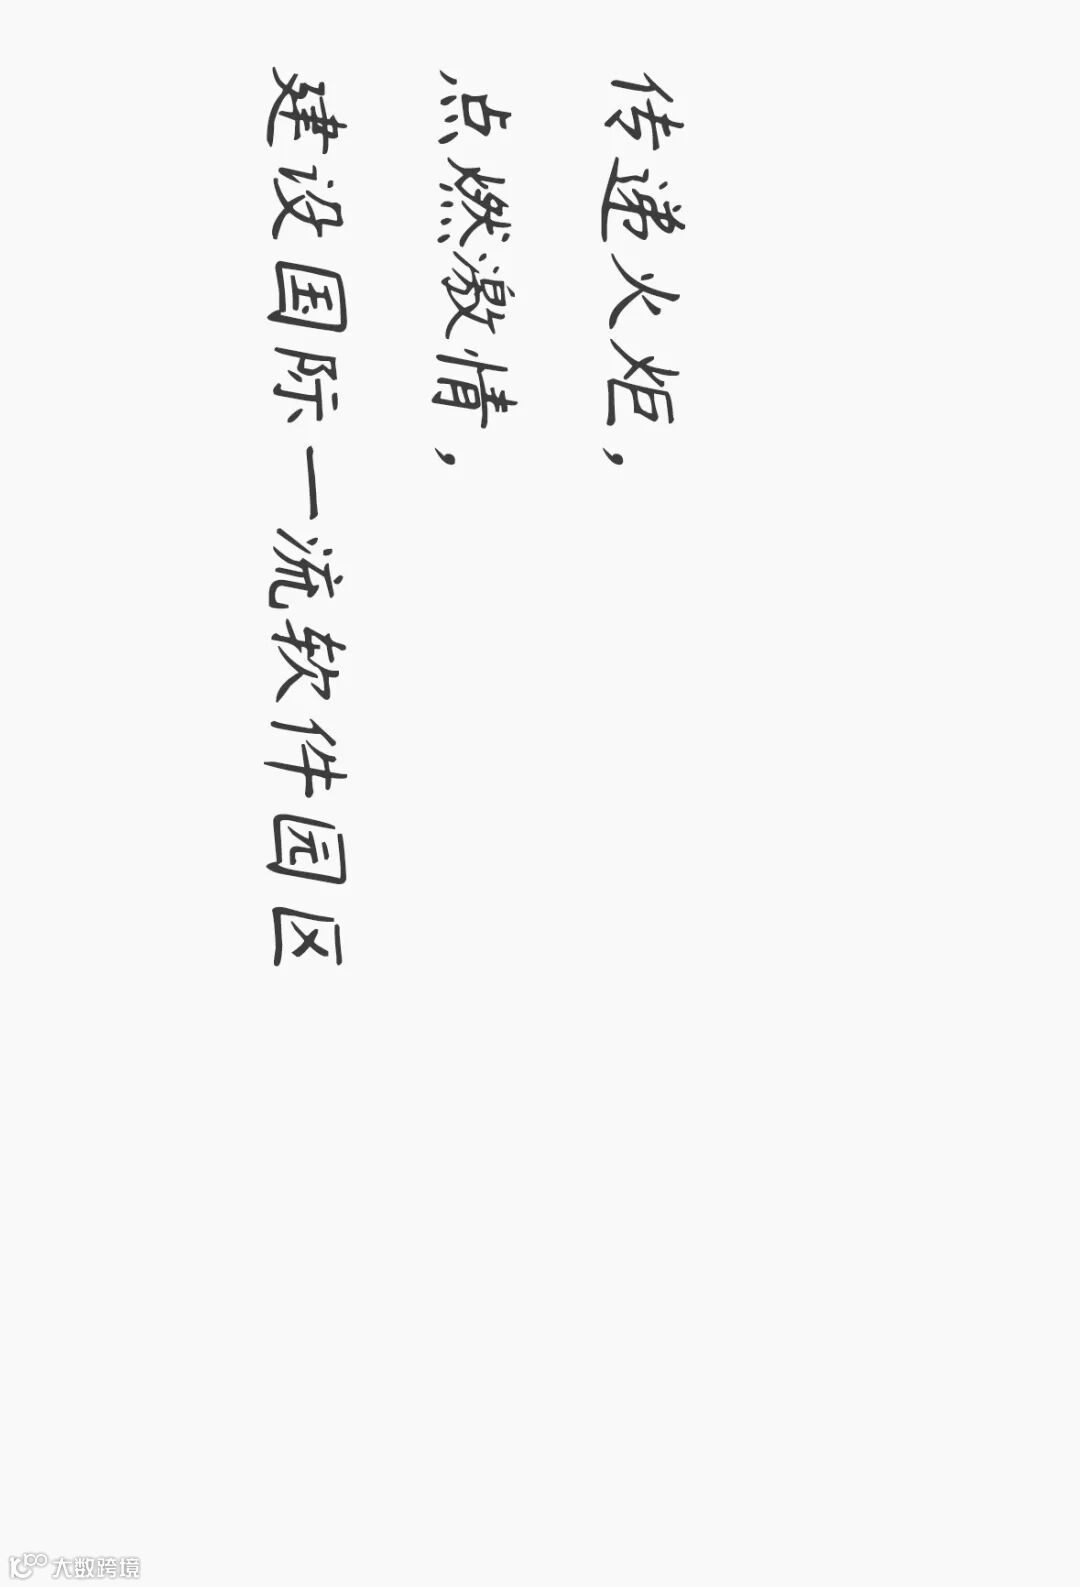 传递火炬，
点燃激情，
建设国际一流软件园区
大数跨境